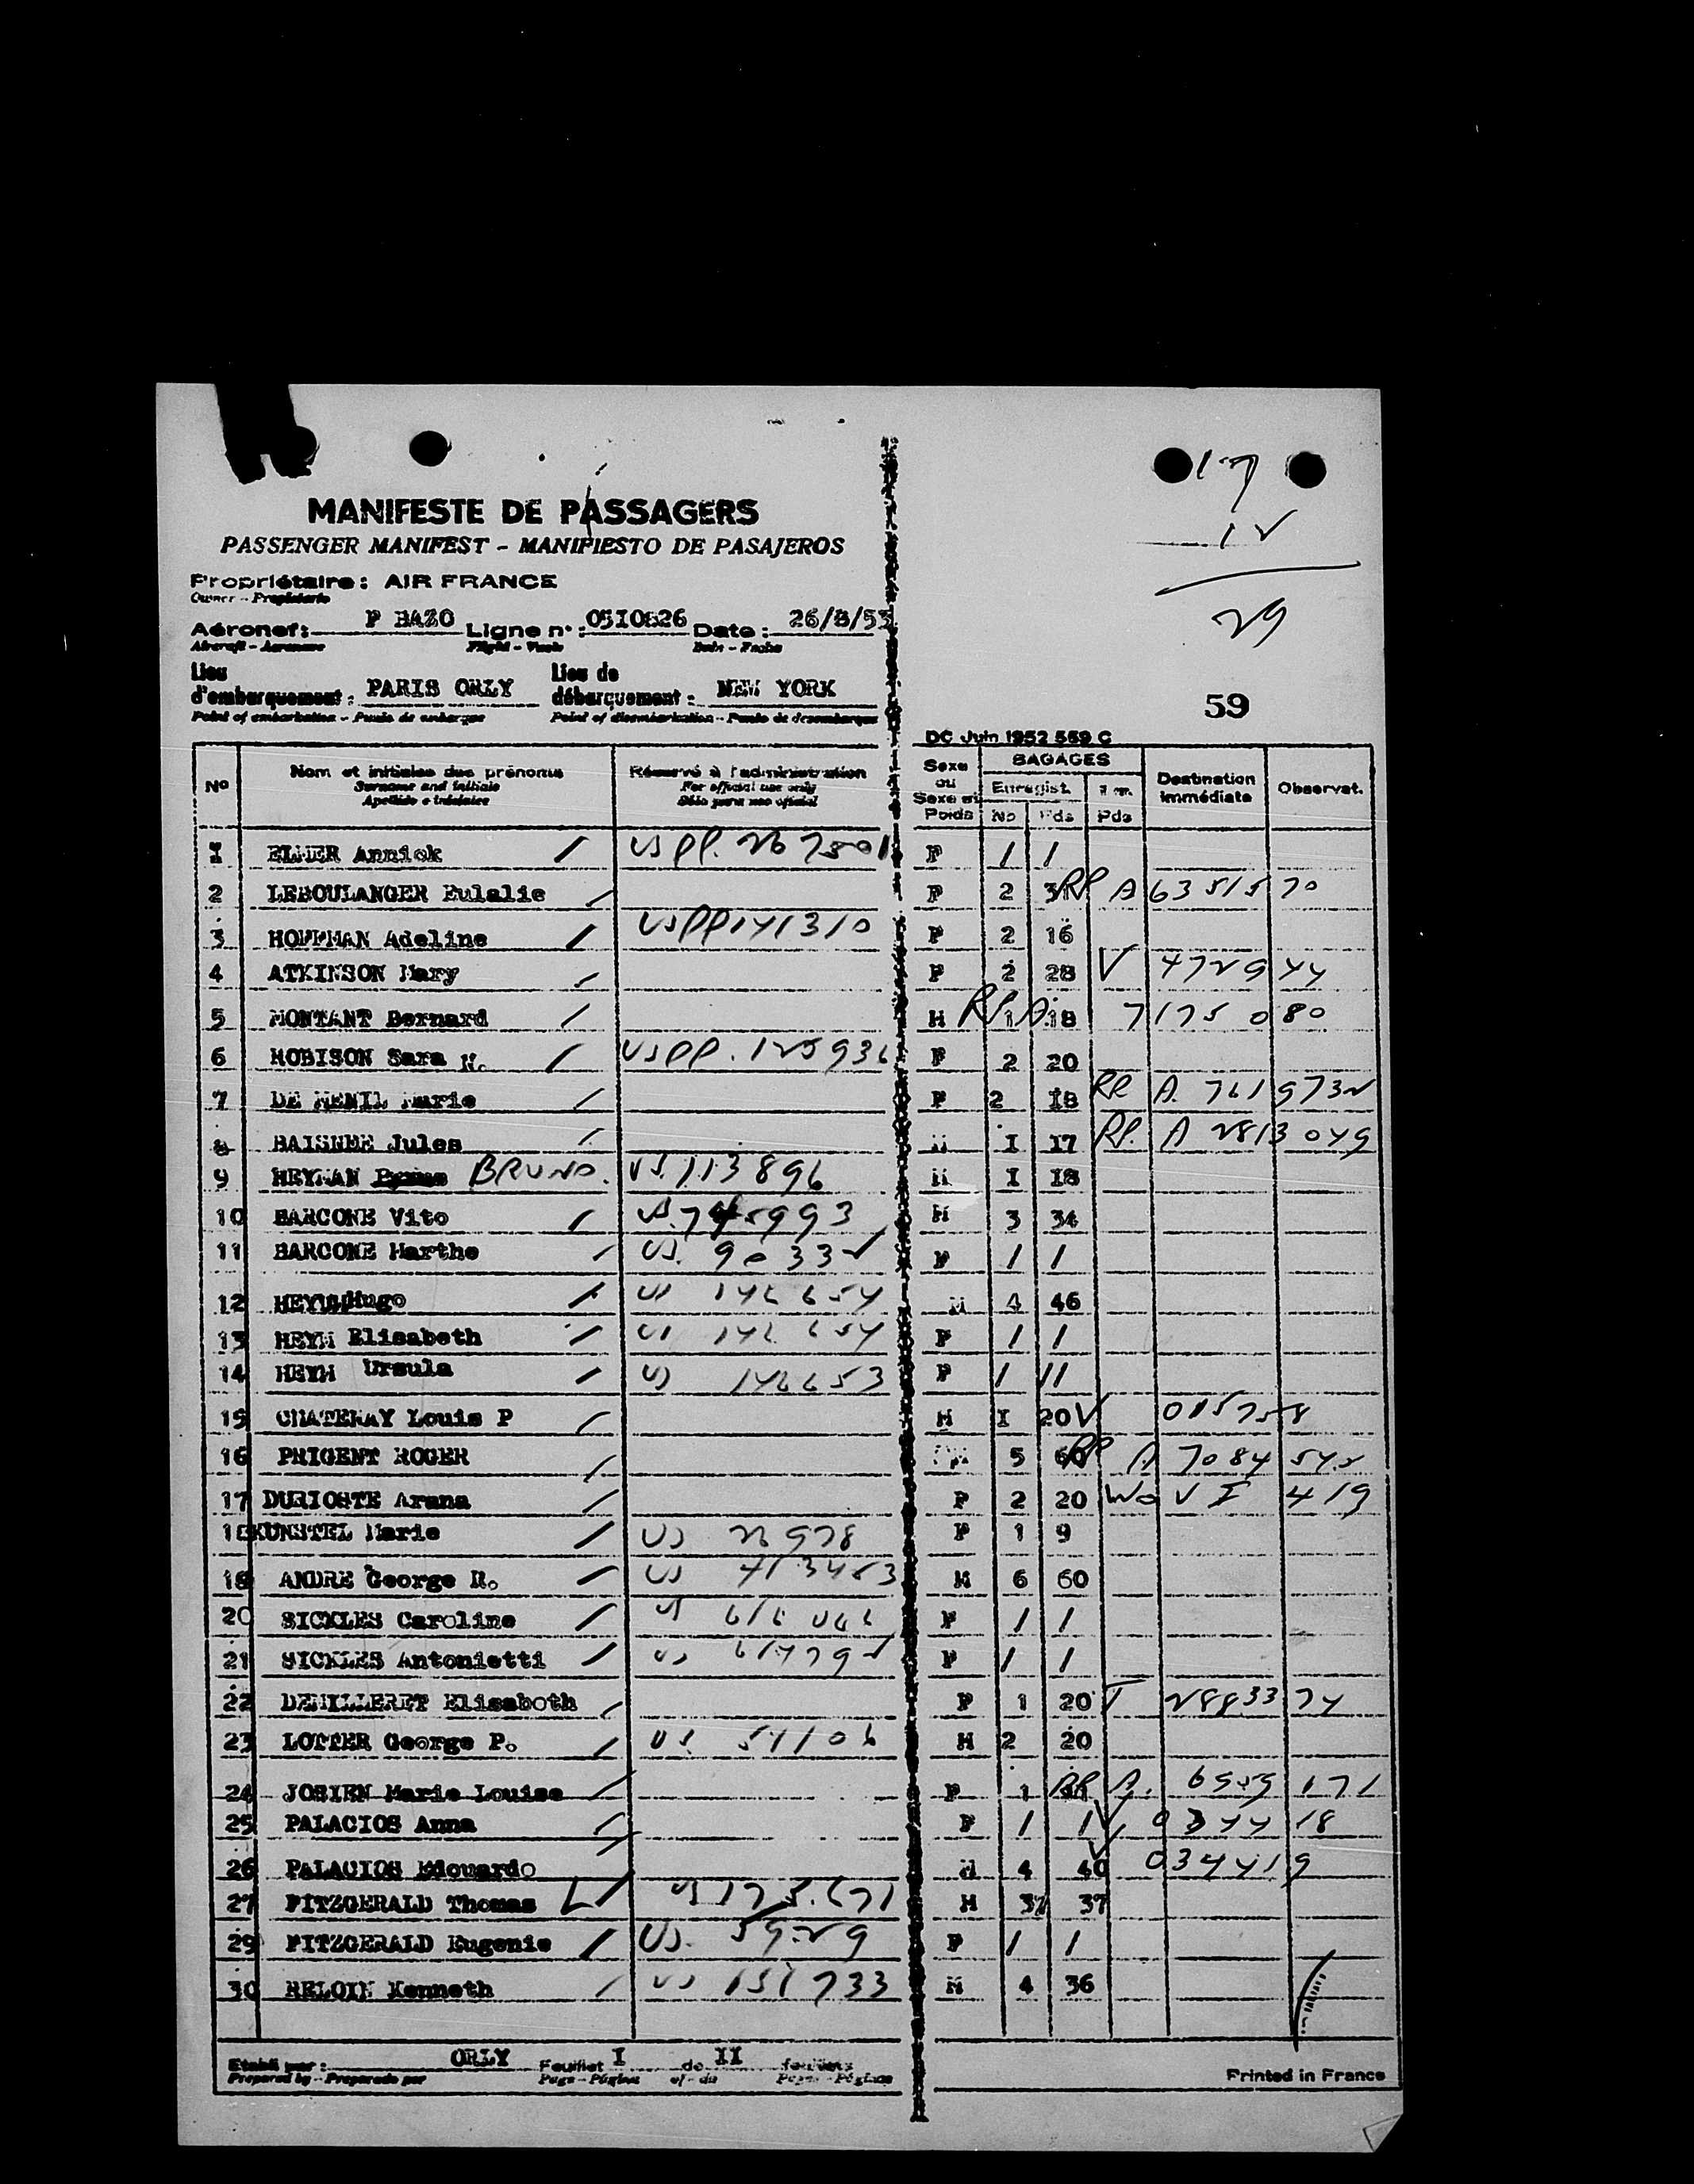 17
12
29
MANIFESTE DE PASSAGERS
PASSENGER MANIFEST - MANIFIESTO DE PASAJEROS
Propriétaire : AIR FRANCE
Owner - Propietario
Aéronef : F BAZO Ligne n° : 0510826 Date : 26/8/53
Aircraft - Aeronave Flight - Vuelo Date - Fecha
Lieu d'embarquement : PARIS ORLY Lieu de débarquement : NEW YORK
Point of embarkation - Punto de embarque Point of disembarkation - Punto de desembarque
59
DC Juin 1952 559 C
N° Nom et initiales des prénoms Réservé à l'administration Sexe ou Sexe et Poids BAGAGES Destination immédiate Observat.
Surname and initials For official use only Enregist.
Apellido e iniciales Sólo para uso oficial No Pds Pds
1 ELMER Annick / US PP. 267501 F / /
2 LEBOULANGER Eulalie / F 2 RP A6351570
3 HOFFMAN Adeline / US PP 141310 F 2 16
4 ATKINSON Mary / F 2 28 V 472944
5 MONTANT Bernard / M 1 18 RP A 7175080
6 ROBISON Sara M. / US PP. F 2 20
7 DE MENIL Marie / F 2 18 RP A. 7619732
8 Jules / M I 17 RP. A 2813049
9 HEYMAN BRUNO. US. 113896 M I 18
10 BARCONE Vito / US. M 3 34
11 BARCONE Marthe / US. 90332 F / /
12 HEYM Hugo / US 146654 M 4 46
13 HEYM Elisabeth / US 146654 F / /
14 HEYM Ursula / US 146653 F / 11
15 CHATENAY Louis P / M I 20 V 015758
16 PRIGENT ROGER / M 5 60 RP A 7084542
17 DURIOSTE Arana / F 2 20 V I 419
18 KUNSTEL Marie / US 26978 F 1 9
19 ANDRE George R. / US M 6 60
20 SICKLES Caroline / US 616046 F / /
21 SICKLES Antonietti / US 614792 F / /
22 DEMILLERET Elisabeth / F 1 20 I 2883374
23 LOTTER George P. / US. 54106 M 2 20
24 JOSIEN Marie Louise / F 1 RP A. 6559171
25 PALACIOS Anna / F / 1 V 034418
26 PALACIOS Edouardo / M 4 40 V 034419
27 FITZGERALD Thomas / US 175.671 M 37 37
29 FITZGERALD Eugenie / US. 59229 F / /
30 Kenneth / US 151733 M 4 36
Etabli par : ORLY Feuillet I de II feuillets
Prepared by - Preparado por Page - Página of - de Pages - Páginas
Printed in France